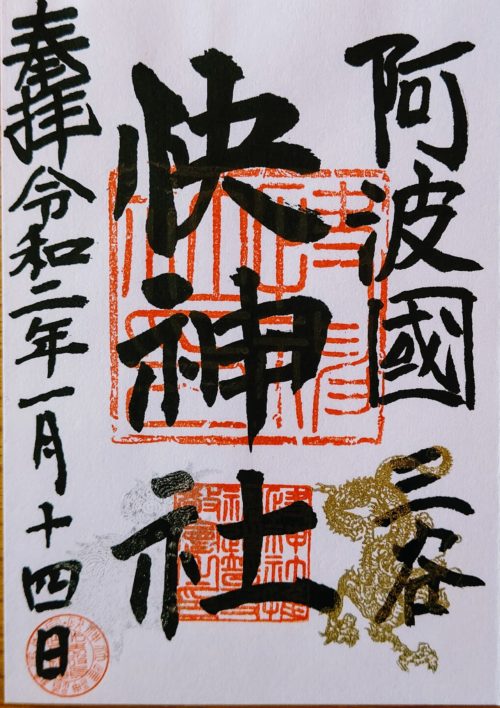 阿波國 三谷
快神社
奉拝 令和二年一月十四日